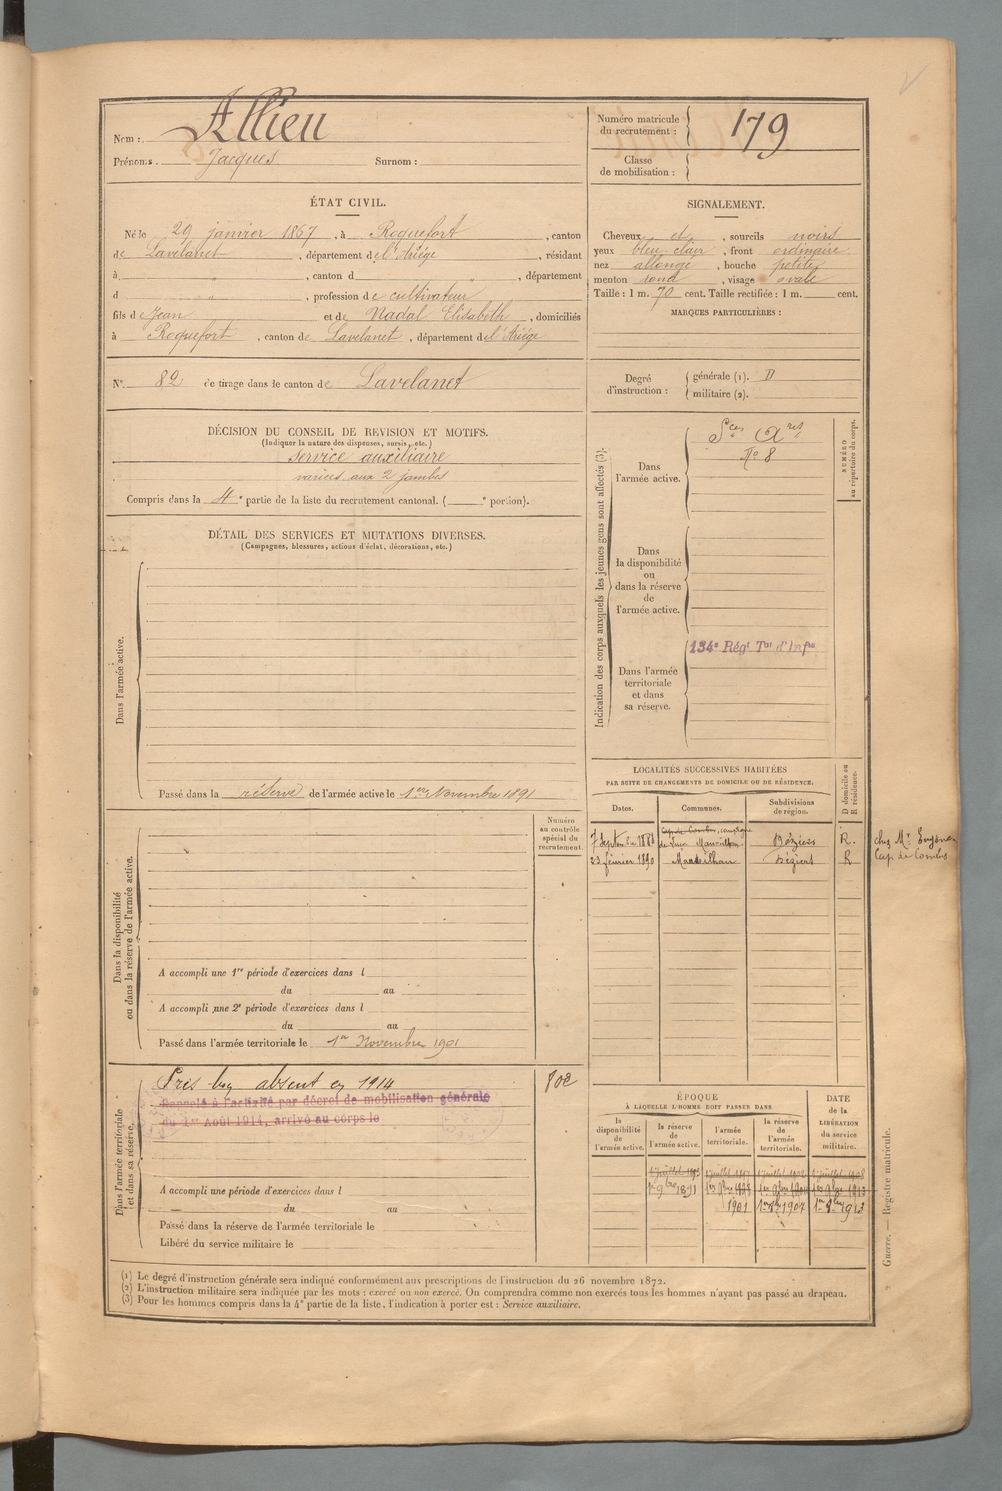 Nom : Allieu
Prénoms. Jacques Surnom :
Numéro matricule du recrutement : 179
Classe de mobilisation :
ÉTAT CIVIL.
Né le 29 janvier 1867, à Roquefort, canton
de Lavelanet, département de l'Ariège, résidant
à, canton d, département
d, profession de cultivateur
fils de Jean et de Nadal Elisabeth, domiciliés
à Roquefort, canton de Lavelanet, département de l'Ariége
N° 82 de tirage dans le canton de Lavelanet
SIGNALEMENT.
Cheveux et, sourcils noirs
yeux bleu clair, front ordinaire
nez allongé, bouche petite
menton rond, visage ovale
Taille : 1 m. 70 cent. Taille rectifiée : 1 m. cent.
MARQUES PARTICULIÈRES :
Degré d'instruction : générale (1). II
militaire (2).
DÉCISION DU CONSEIL DE REVISION ET MOTIFS.
(Indiquer la nature des dispenses, sursis, etc.)
service auxiliaire
varices aux 2 jambes
Compris dans la 4e partie de la liste du recrutement cantonal. ( e portion).
DÉTAIL DES SERVICES ET MUTATIONS DIVERSES.
(Campagnes, blessures, actions d'éclat, décorations, etc.)
Dans l'armée active.
Passé dans la réserve de l'armée active le 1er Novembre 1891
Numéro au contrôle spécial du recrutement.
Dans la disponibilité ou dans la réserve de l'armée active.
A accompli une 1re période d'exercices dans l
du au
A accompli une 2e période d'exercices dans l
du au
Passé dans l'armée territoriale le 1er Novembre 1901
Dans l'armée territoriale et dans sa réserve.
absent en 1914
Rappelé à l'activité par décret de mobilisation générale
du 1er Août 1914, arrivé au corps le
A accompli une période d'exercices dans l
du au
Passé dans la réserve de l'armée territoriale le
Libéré du service militaire le
Indication des corps auxquels les jeunes gens sont affectés (3).
NUMÉRO au répertoire du corps.
Dans l'armée active.
Sces Ares
No 8
Dans la disponibilité ou dans la réserve de l'armée active.
Dans l'armée territoriale et dans sa réserve.
134e Régt Tal d'Infie
LOCALITÉS SUCCESSIVES HABITÉES
PAR SUITE DE CHANGEMENTS DE DOMICILE OU DE RÉSIDENCE.
D domicile ou R résidence.
Dates. Communes. Subdivisions de région.
Béziers R.
23 février 1890 Béziers R
chez Mr
Cap de Combes
ÉPOQUE
À LAQUELLE L'HOMME DOIT PASSER DANS
DATE de la LIBÉRATION du service militaire.
la disponibilité de l'armée active.
la réserve de l'armée active.
l'armée territoriale.
la réserve de l'armée territoriale.
1901
(1) Le degré d'instruction générale sera indiqué conformément aux prescriptions de l'instruction du 26 novembre 1872.
(2) L'instruction militaire sera indiquée par les mots : exercé ou non exercé. On comprendra comme non exercés tous les hommes n'ayant pas passé au drapeau.
(3) Pour les hommes compris dans la 4e partie de la liste, l'indication à porter est : Service auxiliaire.
Guerre. — Registre matricule.